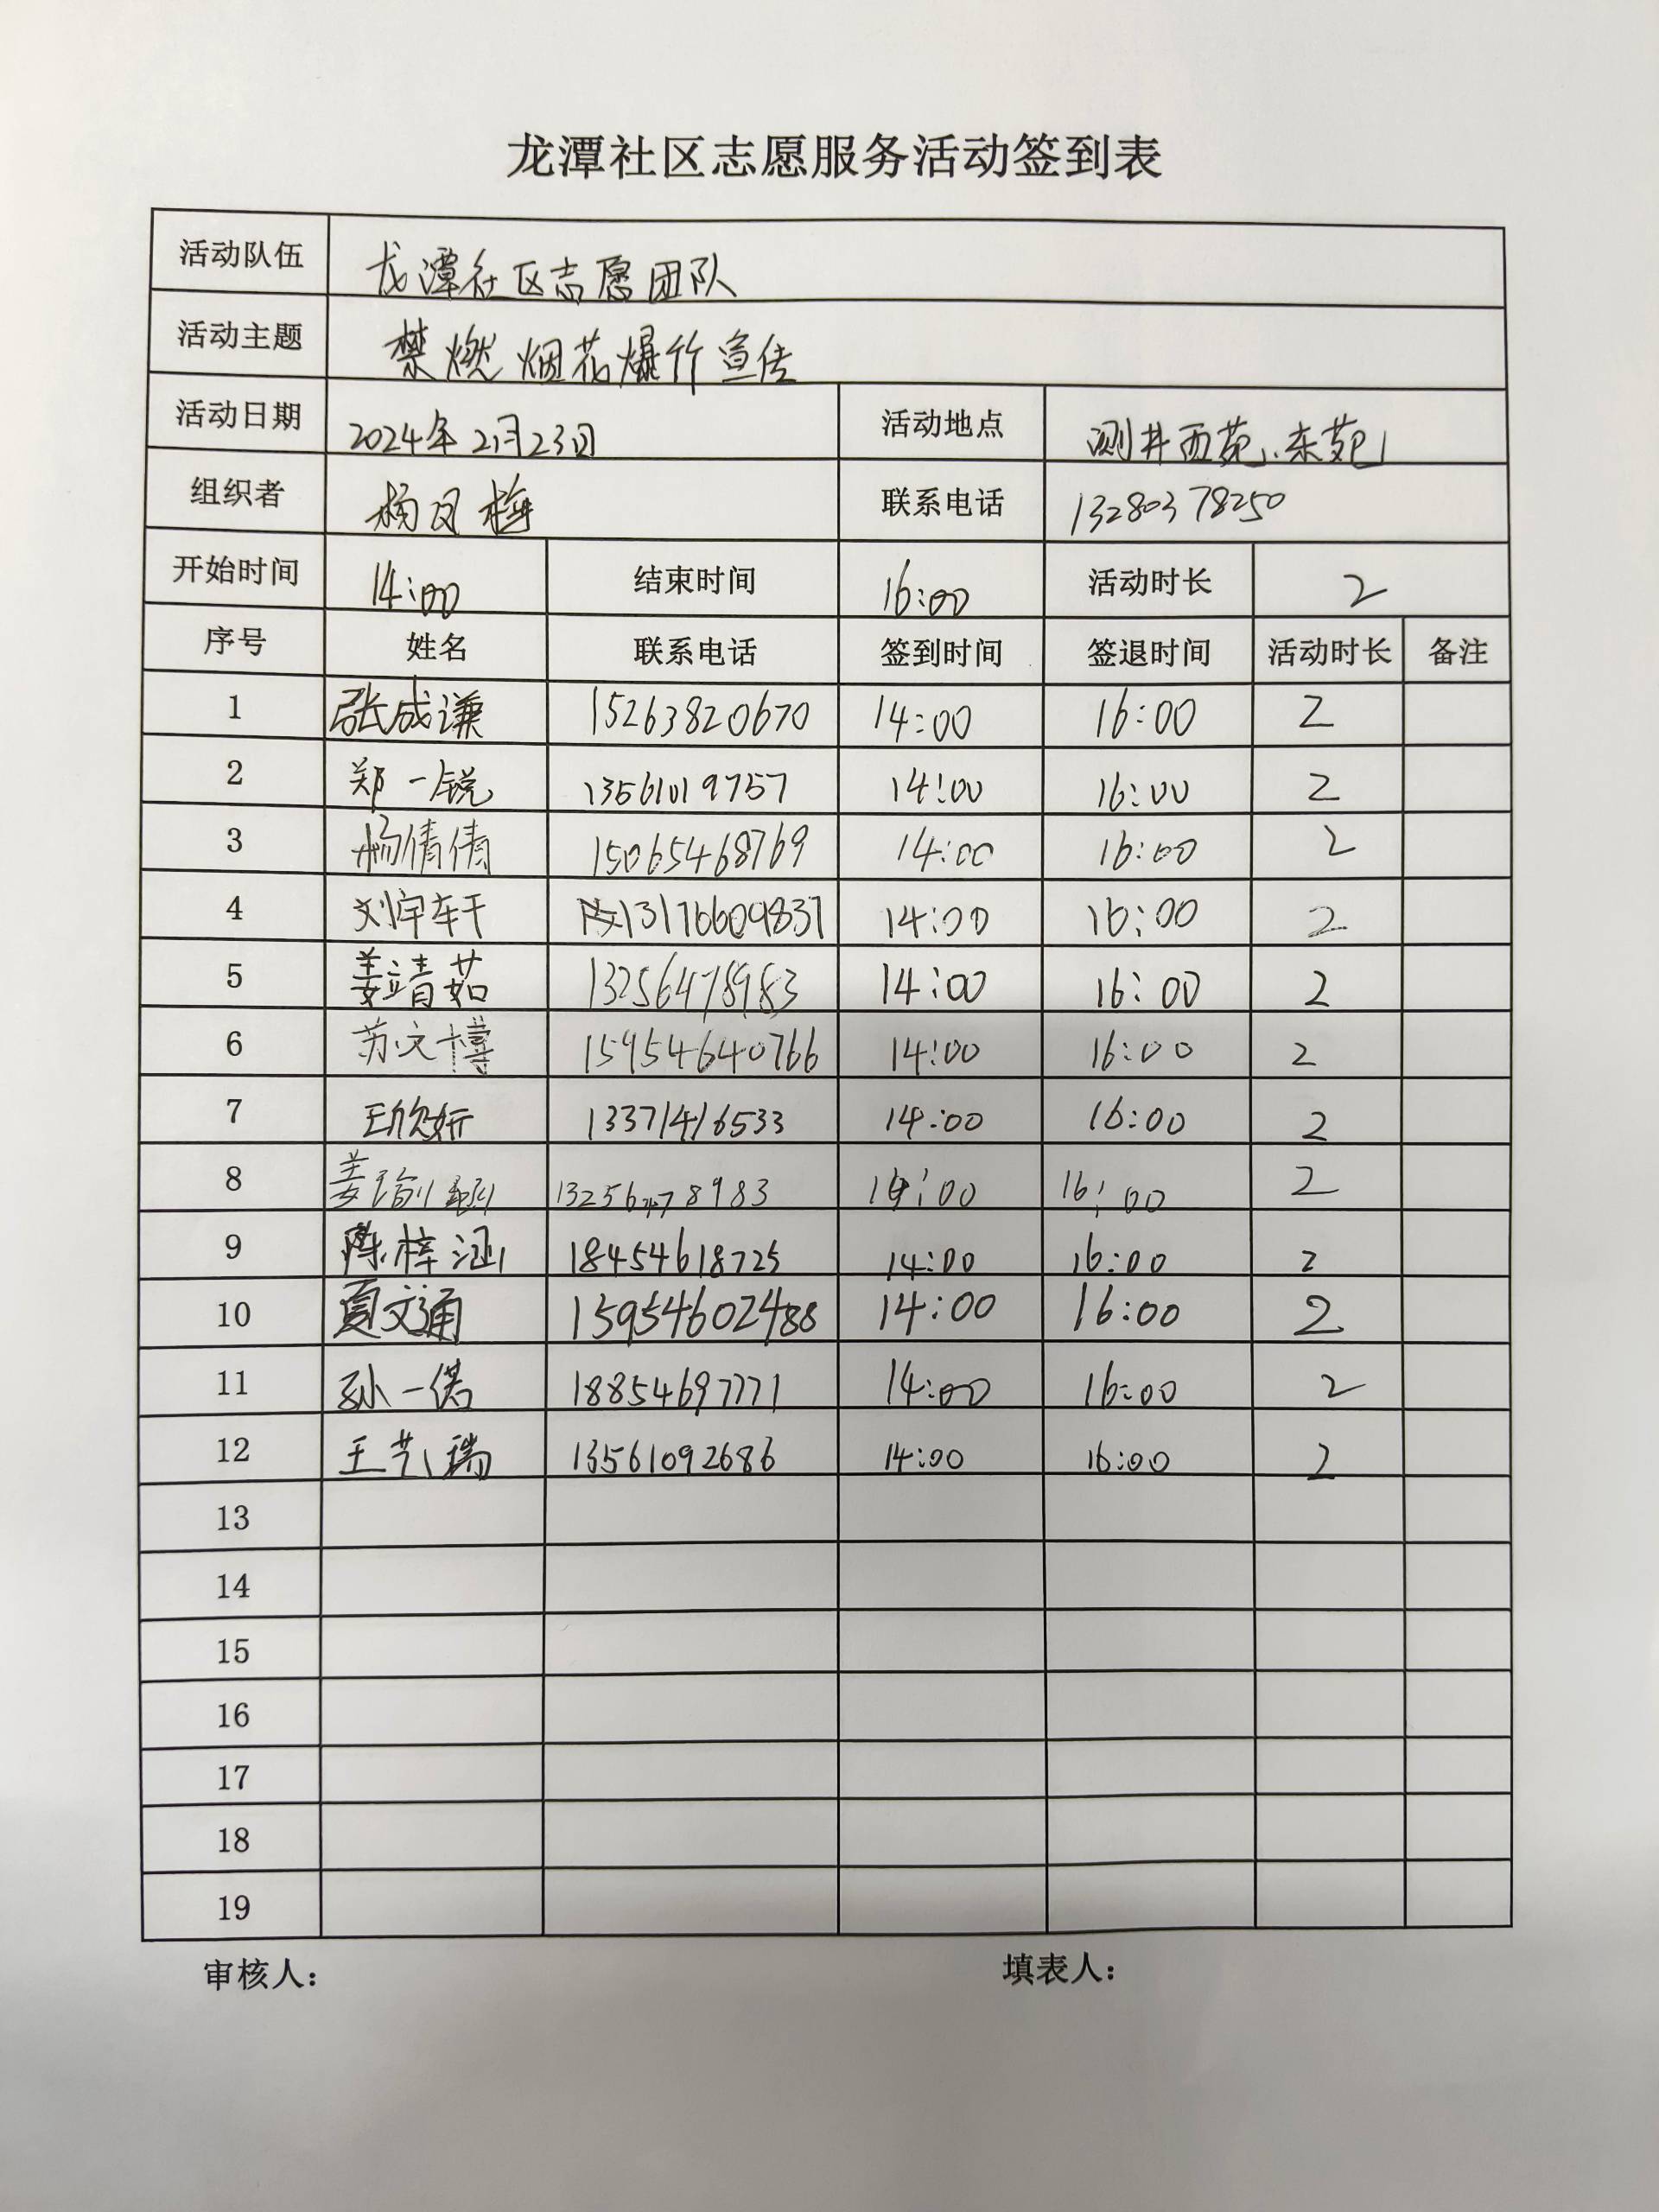 龙潭社区志愿服务活动签到表
活动队伍 龙潭社区志愿团队
活动主题 禁燃烟花爆竹宣传
活动日期 2024年2月23日 活动地点 测井西苑、东苑
组织者 杨月梅 联系电话 13280378250
开始时间 14:00 结束时间 16:00 活动时长 2
序号 姓名 联系电话 签到时间 签退时间 活动时长 备注
1 张成谦 15263820670 14:00 16:00 2
2 郑一锐 13561019757 14:00 16:00 2
3 杨倩倩 15065468769 14:00 16:00 2
4 刘宇轩 13176609837 14:00 16:00 2
5 姜靖茹 13256478983 14:00 16:00 2
6 苏文博 15954640766 14:00 16:00 2
7 王欣妍 13371416533 14:00 16:00 2
8 姜 13256478983 14:00 16:00 2
9 陈梓涵 18454618725 14:00 16:00 2
10 夏文通 15954602488 14:00 16:00 2
11 孙一偌 18854697771 14:00 16:00 2
12 王艺瑞 13561092686 14:00 16:00 2
13
14
15
16
17
18
19
审核人： 填表人：